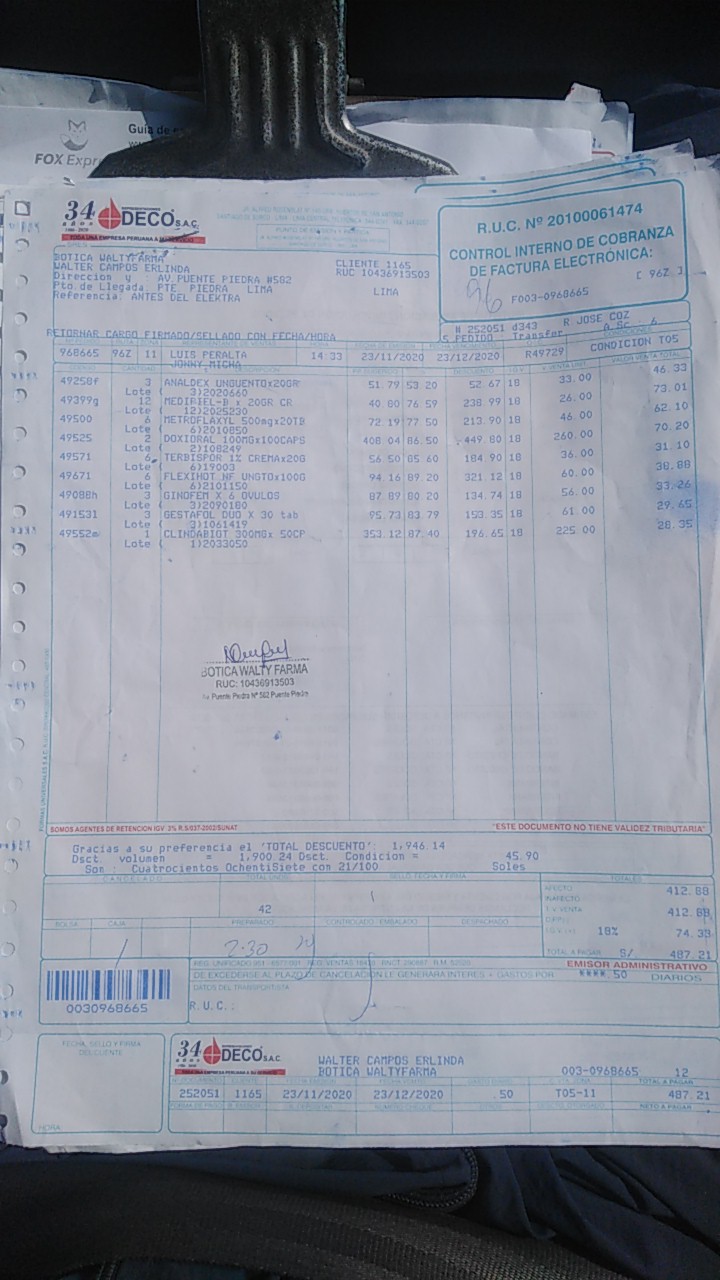 Guía de
FOX Expre
34 años DECO S.A.C.
1986 - 2020
TODA UNA EMPRESA PERUANA A SU SERVICIO
R.U.C. Nº 20100061474
CONTROL INTERNO DE COBRANZA
DE FACTURA ELECTRÓNICA:
96 F003-0968665 [ 96Z ]
BOTICA WALTYFARMA CLIENTE 1165
WALTER CAMPOS ERLINDA RUC 10436913503
Direccion y AV PUENTE PIEDRA #582
Pto de Llegada. PTE PIEDRA LIMA LIMA
Referencia. ANTES DEL ELEKTRA
RETORNAR CARGO FIRMADO/SELLADO CON FECHA/HORA
N 252051 d343 R JOSE COZ
S PEDIGO Transfer A.Sc. 6
968665 96Z 11 LUIS PERALTA 14:33 23/11/2020 23/12/2020 R49729 CONDICION T05
JONNY MICHA
49258f 3 ANALDEX UNGUENTOx20GR 51.79 53 20 52.67 18 33.00 46.33
Lote ( 3)2020660
49399g 12 MEDIBIEL-B x 20GR CR 40.80 76.59 238.99 18 26.00 73.01
Lote ( 12)2025230
49500 6 METROFLAXYL 500mgx20TB 72.19 77 50 213.90 18 46.00 62.10
Lote ( 6)2010850
49525 2 DOXIORAL 100MGx100CAPS 408.04 86.50 449.80 18 260.00 70.20
Lote ( 2)108249
49571 6 TERBISPOR 1% CREMAx20G 56.50 85 60 184.90 18 36.00 31.10
Lote ( 6)19003
49671 6 FLEXIHOT NF UNGTOx100G 94.16 89.20 321.12 18 60.00 38.88
Lote ( 6)2101150
49088h 3 GINOFEM X 6 OVULOS 87.89 80.20 134.74 18 56.00 33.26
Lote ( 3)2090180
491531 3 GESTAFOL DUO X 30 tab 95.73 83.79 153.35 18 61.00 29.65
Lote ( 3)1061419
49552m 1 CLINDABIOT 300MGx 50CP 353.12 87.40 196.65 18 225.00 28.35
Lote ( 1)2033050
BOTICA WALTY FARMA
RUC: 10436913503
Av. Puente Piedra Nº 582 Puente Piedra
SOMOS AGENTES DE RETENCION IGV 3% R.S/037-2002/SUNAT "ESTE DOCUMENTO NO TIENE VALIDEZ TRIBUTARIA"
Gracias a su preferencia el 'TOTAL DESCUENTO': 1,946.14
Dsct. volumen = 1,900.24 Dsct. Condicion = 45.90
Son : Cuatrocientos OchentiSiete con 21/100 Soles
CANCELADO TOTAL UNIDS. SELLO, FECHA Y FIRMA TOTALES
AFECTO 412.88
INAFECTO
42 T.V. VENTA 412.88
BOLSA CAJA PREPARADO CONTROLADO / EMBALADO DESPACHADO
I.G.V. 18% 74.33
TOTAL A PAGAR S/ 487.21
EMISOR ADMINISTRATIVO
DE EXCEDERSE AL PLAZO DE CANCELACIÓN LE GENERARA INTERES + GASTOS POR ****.50 DIARIOS
DATOS DEL TRANSPORTISTA
R.U.C.:
0030968665
FECHA, SELLO Y FIRMA
DEL CLIENTE
HORA:
34 años DECO S.A.C.
1986 - 2020
TODA UNA EMPRESA PERUANA A SU SERVICIO
WALTER CAMPOS ERLINDA
BOTICA WALTYFARMA 003-0968665 12
TOTAL A PAGAR
252051 1165 23/11/2020 23/12/2020 .50 T05-11 487.21
NETO A PAGAR